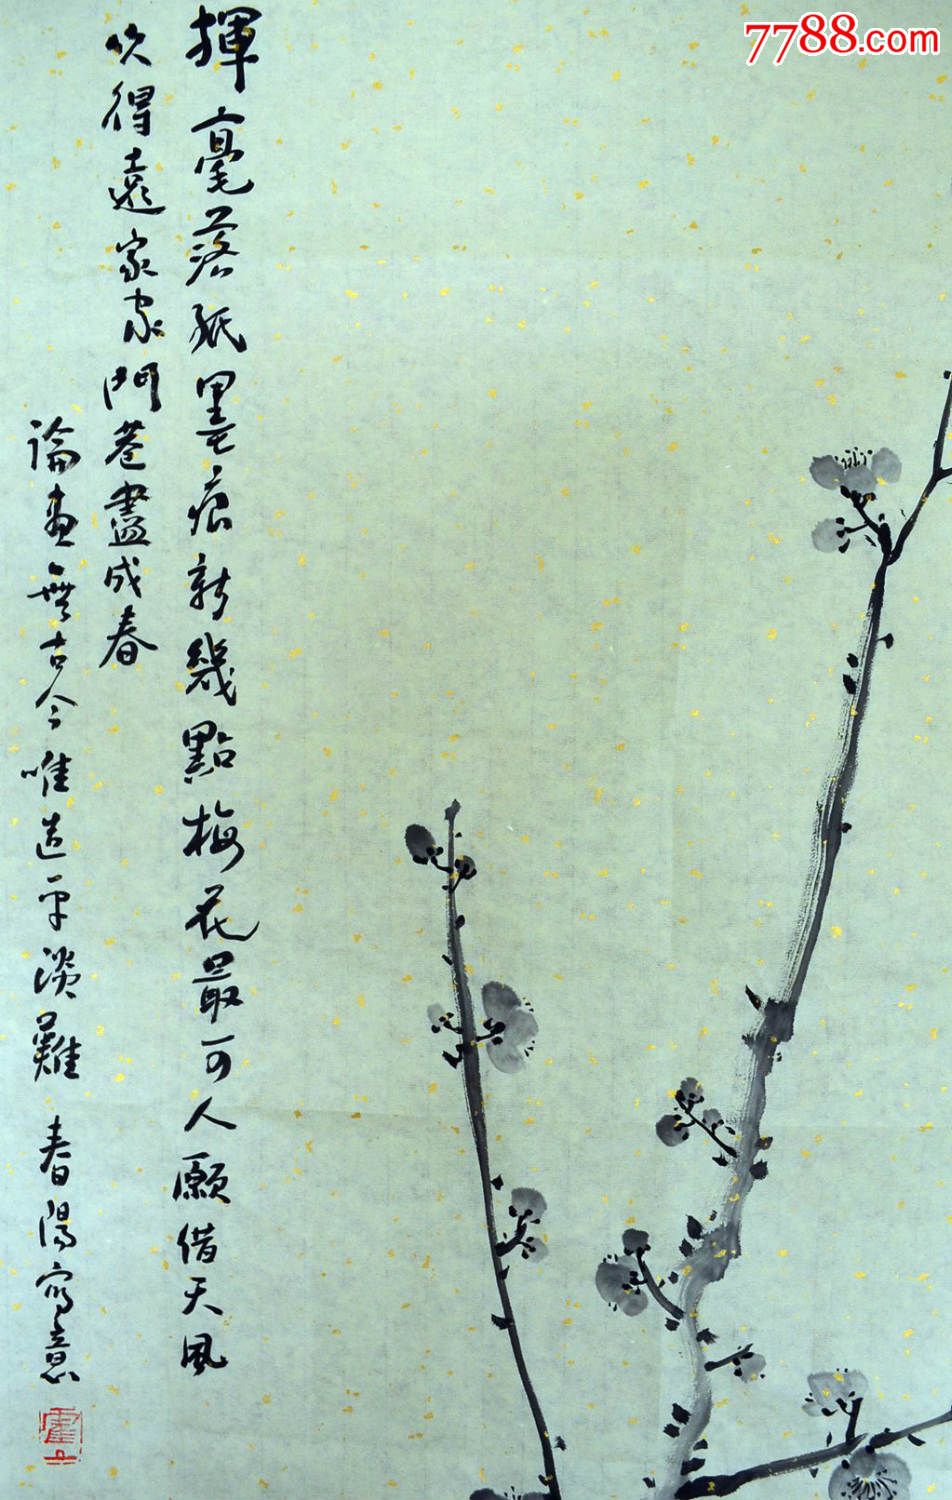 揮毫落紙墨痕新幾點梅花最可人願借天風
吹得遠家家門巷盡成春
論畫無古今唯造平淡難 春陽寫意
7788.com